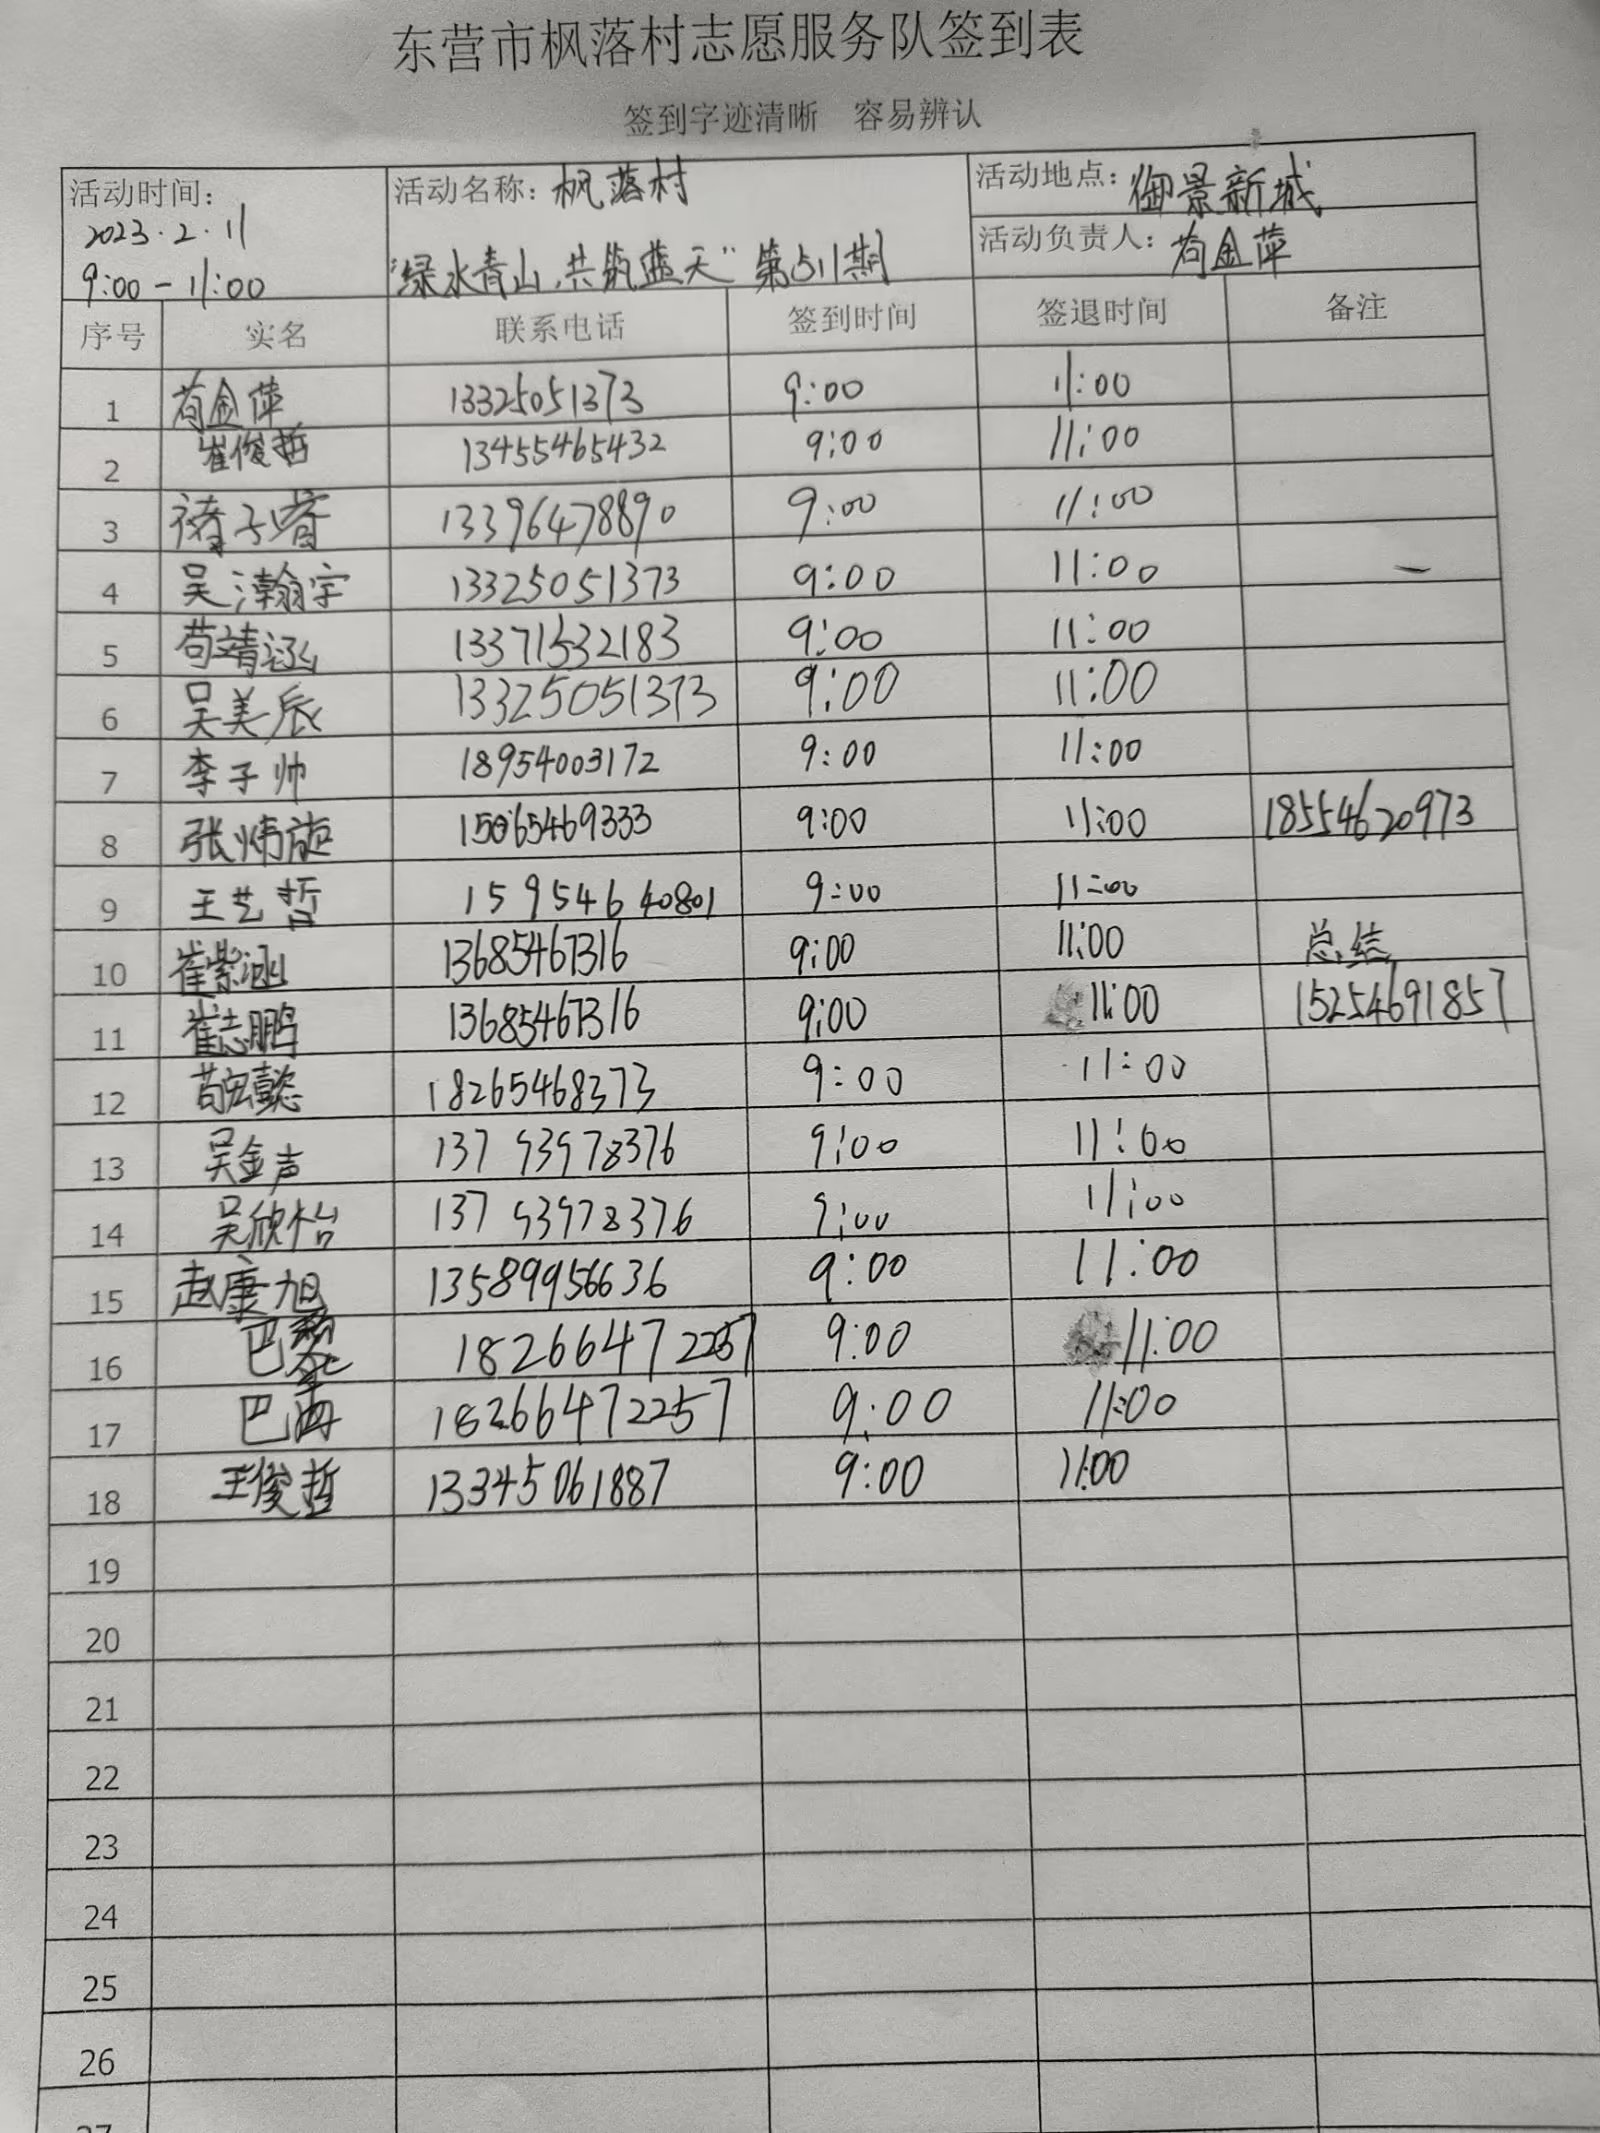 东营市枫落村志愿服务队签到表
签到字迹清晰 容易辨认
活动时间: 2023.2.11 9:00-11:00
活动名称: 枫落村
"绿水青山,共筑蓝天"第511期
活动地点: 御景新城
活动负责人: 苟金萍
序号 实名 联系电话 签到时间 签退时间 备注
1 苟金萍 13325051373 9:00 11:00
2 崔俊哲 13455465432 9:00 11:00
3 褚子睿 13396478890 9:00 11:00
4 吴瀚宇 13325051373 9:00 11:00
5 苟靖涵 13371532183 9:00 11:00
6 吴美辰 13325051373 9:00 11:00
7 李子帅 18954003172 9:00 11:00
8 张炜旋 15065469333 9:00 11:00 18554620973
9 王艺哲 15954640801 9:00 11:00
10 崔紫涵 13685467316 9:00 11:00 总结
11 崔志鹏 13685467316 9:00 11:00 15254691857
12 苟宏懿 18265468373 9:00 11:00
13 吴金声 13793978376 9:00 11:00
14 吴欣怡 13793978376 9:00 11:00
15 赵康旭 13589956636 9:00 11:00
16 巴 18266472257 9:00 11:00
17 巴 18266472257 9:00 11:00
18 王俊哲 13345061887 9:00 11:00
19
20
21
22
23
24
25
26
27